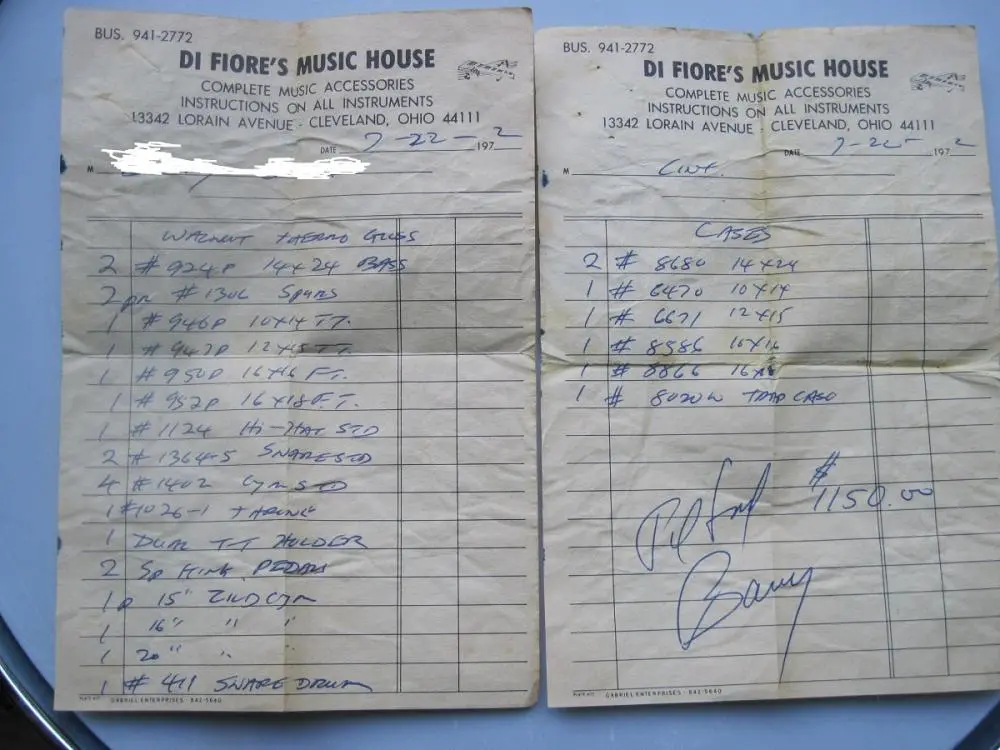 BUS. 941-2772
DI FIORE'S MUSIC HOUSE
COMPLETE MUSIC ACCESSORIES
INSTRUCTIONS ON ALL INSTRUMENTS
13342 LORAIN AVENUE - CLEVELAND, OHIO 44111
DATE 7-22-2 197
M
WALNUT THERMO GLOSS
2 # 924P 14x24 BASS
2 pr #1306 Spurs
1 # 946P 10x14 TT.
1 # 947P 12x15 TT.
1 # 950P 16x16 FT.
1 # 952P 16x18 F.T.
1 # 1124 Hi-Hat STD
2 # 1364-5 SNARE STD
4 # 1402 Cym STD
1 #1026-1 THRONE
1 DUAL TT HOLDER
2 Sp King PEDALS
1 p 15" ZILD Cym
1 16" " "
1 20" " "
1 # 411 SNARE DRUM
GABRIEL ENTERPRISES - 842-5640
BUS. 941-2772
DI FIORE'S MUSIC HOUSE
COMPLETE MUSIC ACCESSORIES
INSTRUCTIONS ON ALL INSTRUMENTS
13342 LORAIN AVENUE - CLEVELAND, OHIO 44111
DATE 197 2
M Cont.
CASES
2 # 8680 14x24
1 # 6470 10x14
1 # 6671 12x15
1 # 8586 16x16
1 # 8866
1 # 8020W TRAP CASE
$
1150.00
Barry
GABRIEL ENTERPRISES - 842-5640